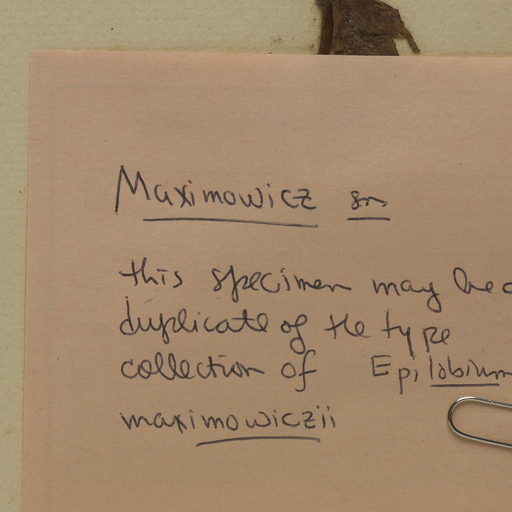 Maximowicz sn
this specimen may be a
duplicate of the type
collection of Epilobium
maximowiczii